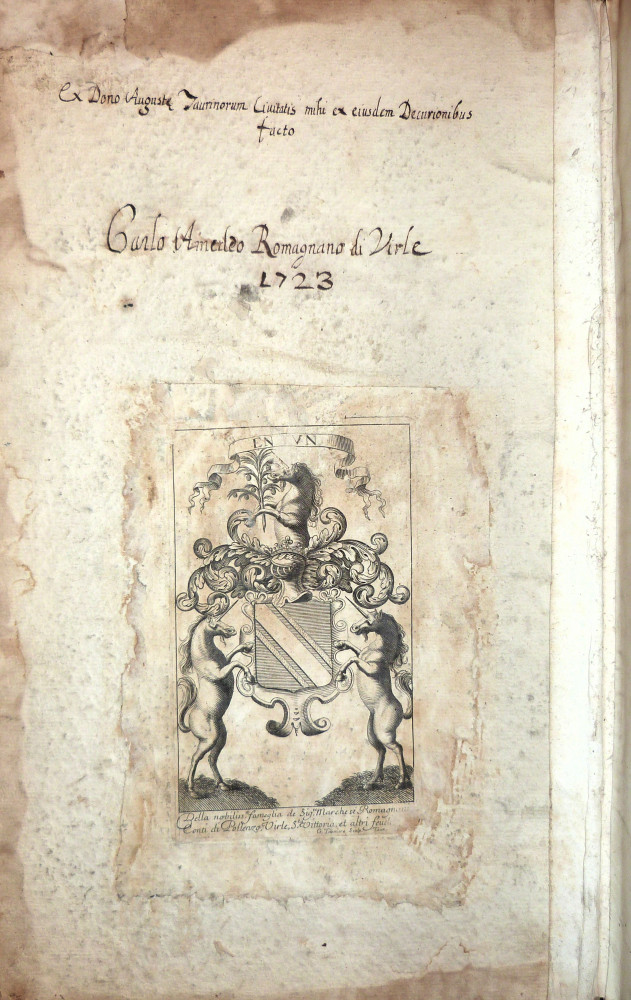 Ex Dono Augustę Taurinorum Ciuitatis mihi ex eiusdem Decurionibus
facto
Carlo Amedeo Romagnano di Virle
1723
EN VN
Della nobiliss.ᵃ fameglia de Sig.ʳⁱ Marchesi Romagnani
Conti di Virle, S. Vittoria, et altri